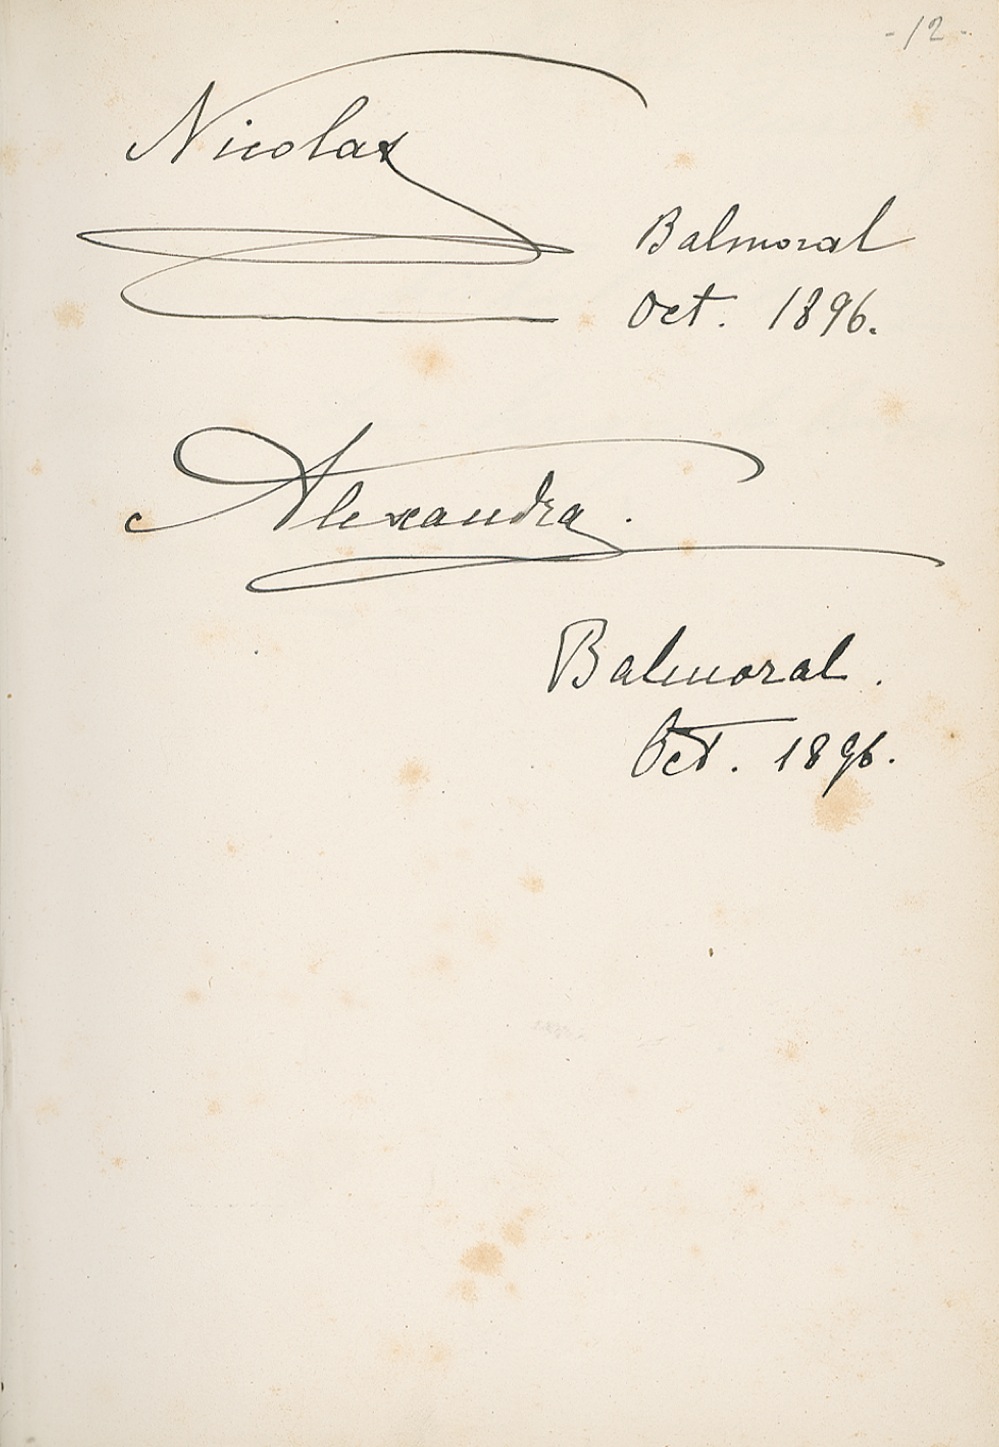 - 12 -
Nicolas
Balmoral
Oct. 1896.
Alexandra.
Balmoral.
Oct. 1896.